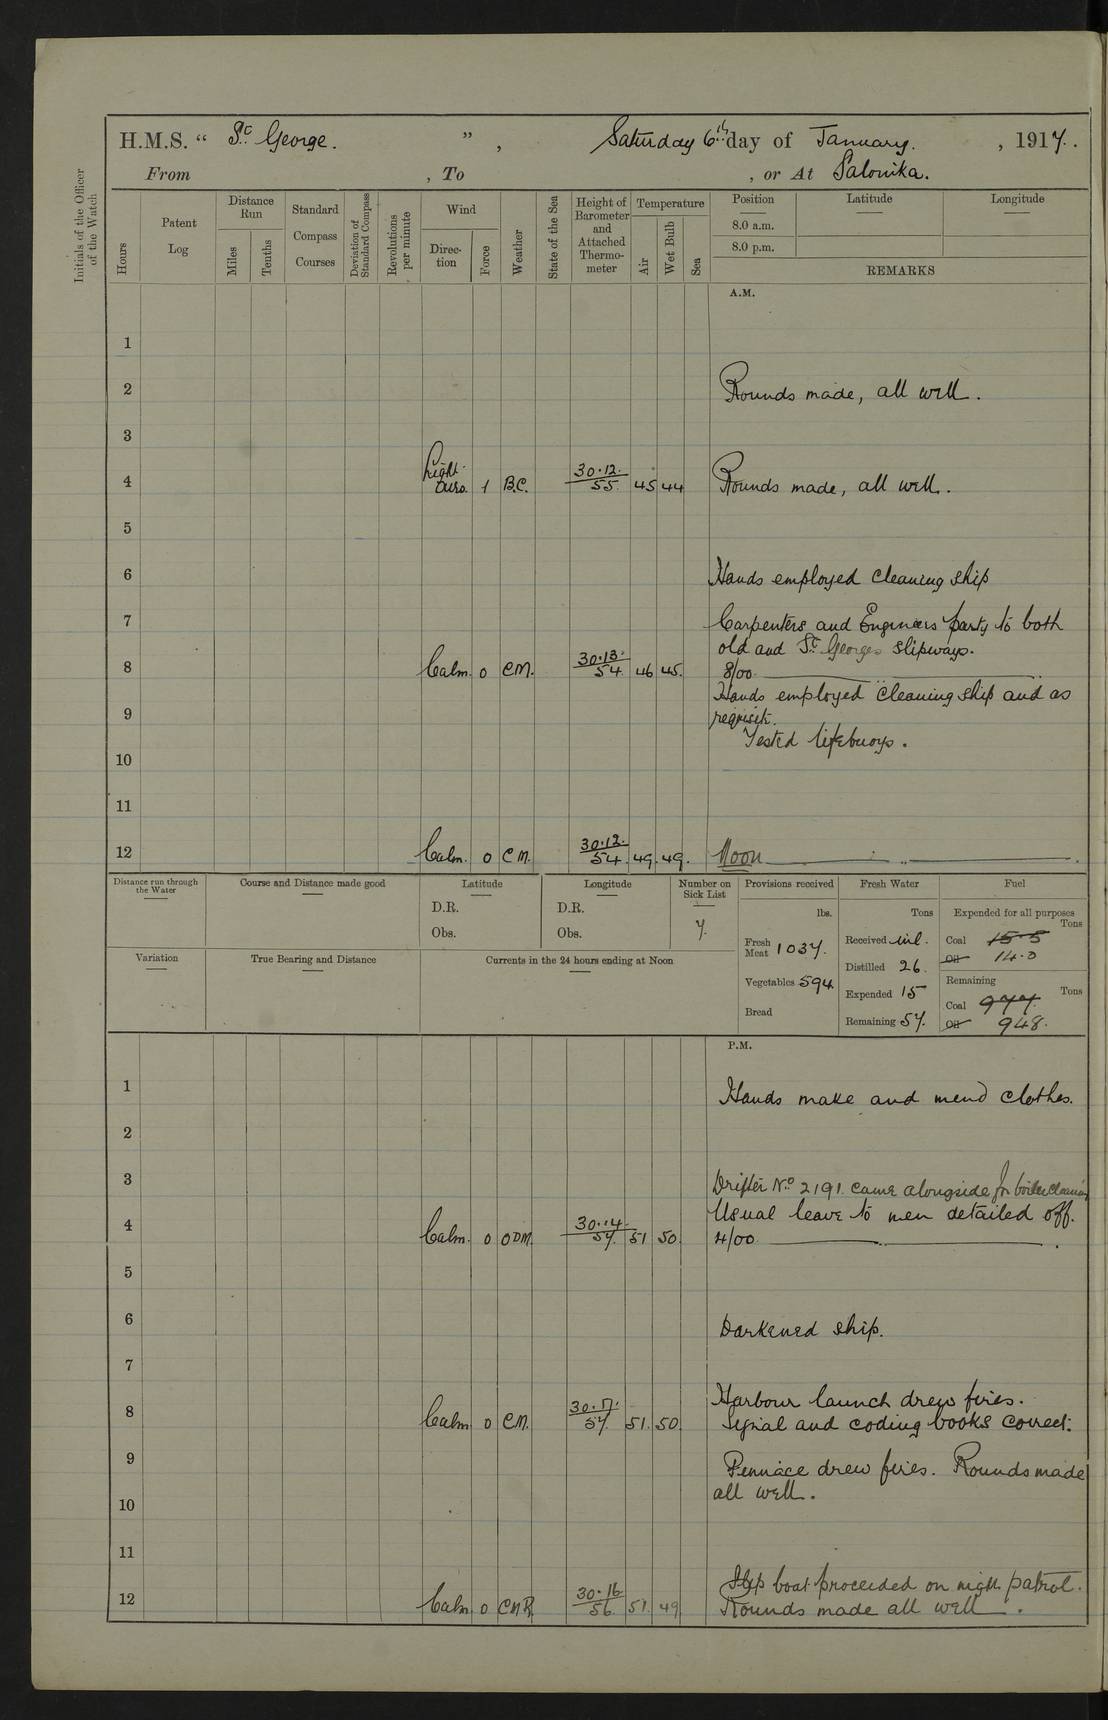 H.M.S. “ St. George. ” , Saturday 6th day of January. , 1917.
From , To , or At Salonika.
Initials of the Officer of the Watch
Hours
Patent Log
Distance Run
Miles
Tenths
Standard Compass Courses
Deviation of Standard Compass
Revolutions per minute
Wind
Direction
Force
Weather
State of the Sea
Height of Barometer and Attached Thermometer
Temperature
Air
Wet Bulb
Sea
Position
8.0 a.m.
8.0 p.m.
Latitude
Longitude
REMARKS
A.M.
1
2 Rounds made, all well.
3
4 Light airs. 1 B.C. 30.12. 55. 45 44 Rounds made, all well.
5
6 Hands employed cleaning ship
7 Carpenters and Engineers party to both
old and St. Georges slipways.
8 Calm. 0 C.M. 30.13. 54. 46 45. 8/00
Hands employed cleaning ship and as
9 requisite.
Tested lifebuoys.
10
11
12 Calm. 0 C.M. 30.12. 54. 49. 49. Noon
Distance run through the Water
Course and Distance made good
Latitude
D.R.
Obs.
Longitude
D.R.
Obs.
Number on Sick List
7.
Provisions received
lbs.
Fresh Meat 1037.
Vegetables 594
Bread
Fresh Water
Tons
Received nil.
Distilled 26.
Expended 15
Remaining 57.
Fuel
Expended for all purposes
Tons
Coal 15.5
Oil 14.0
Remaining
Tons
Coal 977.
Oil 948.
Variation
True Bearing and Distance
Currents in the 24 hours ending at Noon
P.M.
1 Hands make and mend clothes.
2
3 Drifter No. 2191. came alongside for boiler cleaning
Usual leave to men detailed off.
4 Calm. 0 ODM. 30.14. 57. 51 50. 4/00
5
6 Darkened ship.
7
Harbour launch drew fires.
8 Calm 0 C.M. 30.17. 57. 51. 50. Signal and coding books correct.
9 Pinnace drew fires. Rounds made
all well.
10
11
boat proceeded on night patrol.
12 Calm 0 CMR. 30.16 56. 51. 49. Rounds made all well.